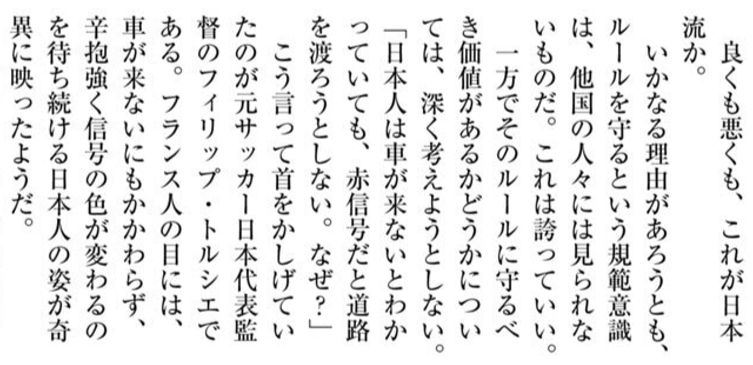 良くも悪くも、これが日本
流か。
いかなる理由があろうとも、
ルールを守るという規範意識
は、他国の人々には見られな
いものだ。これは誇っていい。
一方でそのルールに守るべ
き価値があるかどうかについ
ては、深く考えようとしない。
「日本人は車が来ないとわか
っていても、赤信号だと道路
を渡ろうとしない。なぜ？」
こう言って首をかしげてい
たのが元サッカー日本代表監
督のフィリップ・トルシエで
ある。フランス人の目には、
車が来ないにもかかわらず、
辛抱強く信号の色が変わるの
を待ち続ける日本人の姿が奇
異に映ったようだ。